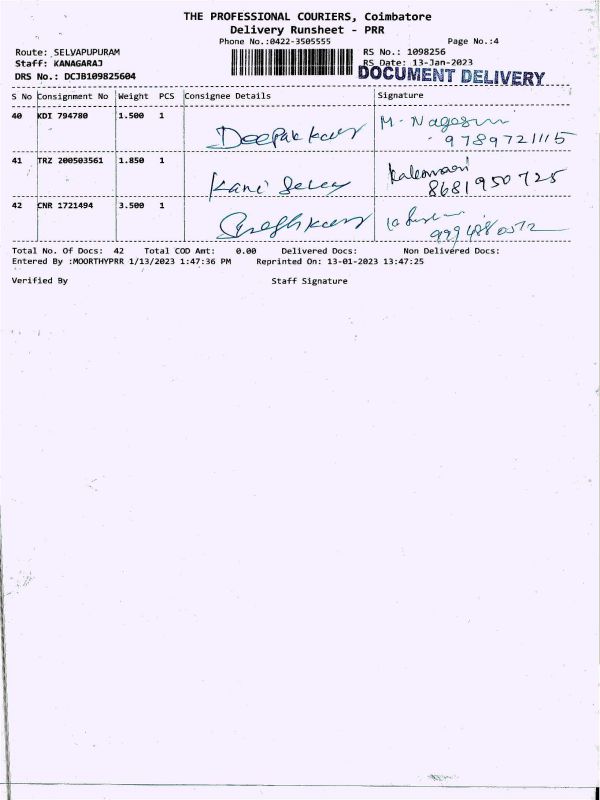 THE PROFESSIONAL COURIERS, Coimbatore
Delivery Runsheet - PRR
Phone No.:0422-3505555
Page No.:4
Route: SELVAPUPURAM
RS No.: 1098256
Staff: KANAGARAJ
RS Date: 13-Jan-2023
DRS No.: DCJB109825604
DOCUMENT DELIVERY
S No Consignment No Weight PCS Consignee Details Signature
40 KDI 794780 1.500 1 Deepak kumar M. Nageswari
9789721115
41 TRZ 200503561 1.850 1 Kani Selvy
8681950725
42 CNR 1721494 3.500 1
Total No. Of Docs: 42 Total COD Amt: 0.00 Delivered Docs: Non Delivered Docs:
Entered By :MOORTHYPRR 1/13/2023 1:47:36 PM Reprinted On: 13-01-2023 13:47:25
Verified By Staff Signature